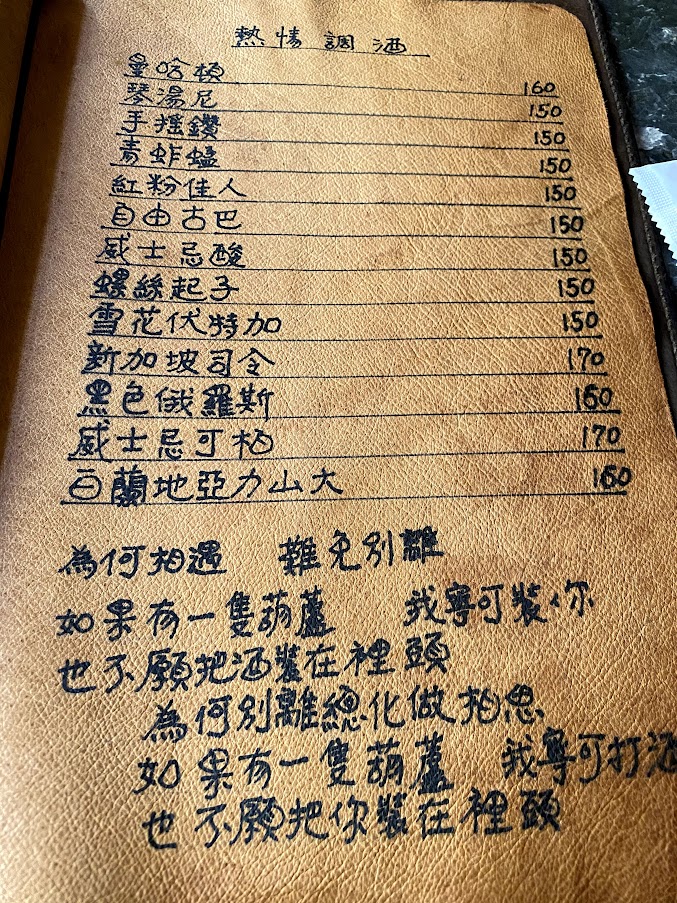 熱情調酒
曼哈頓 160
琴湯尼 150
手搖鑽 150
青蚱蜢 150
紅粉佳人 150
自由古巴 150
威士忌酸 150
螺絲起子 150
雪花伏特加 150
新加坡司令 170
黑色俄羅斯 160
威士忌可柏 170
白蘭地亞力山大 160
為何相遇 難免別離
如果有一隻葫蘆 我寧可裝你
也不願把酒裝在裡頭
為何別離總化做相思
如果有一隻葫蘆 我寧可打酒
也不願把你裝在裡頭